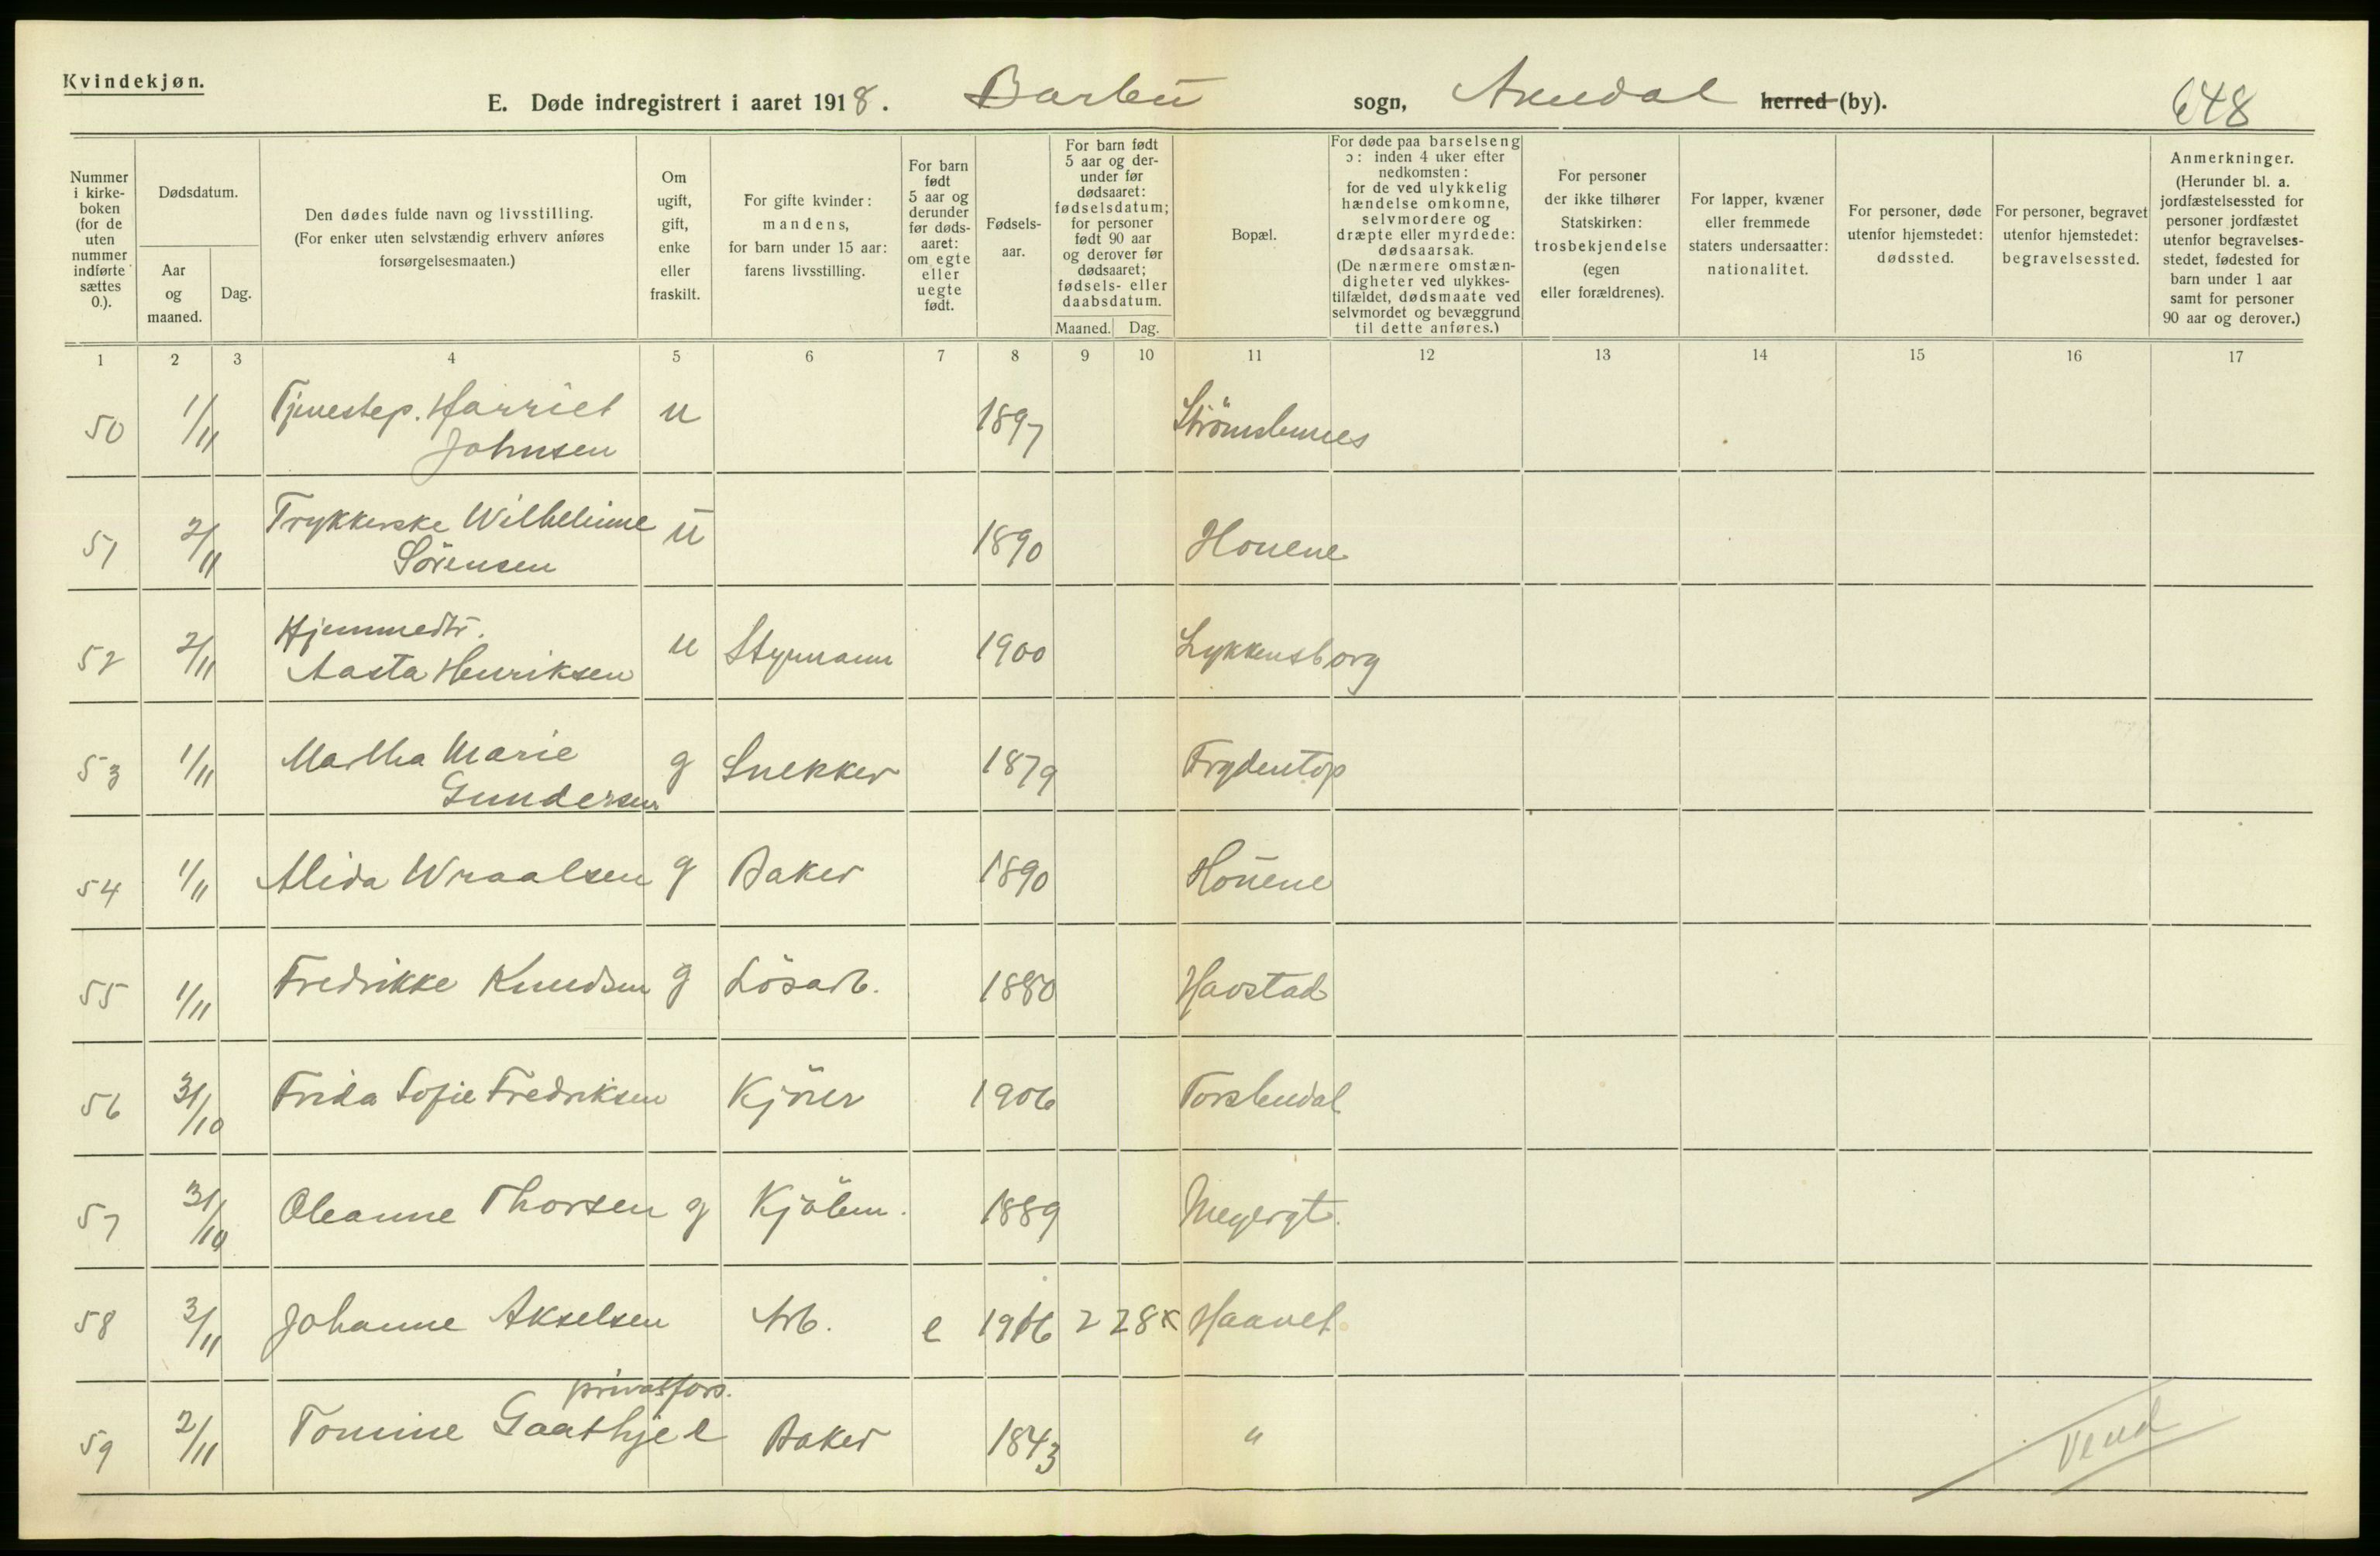 Kvindekjøn.
E. Døde indregistrert i aaret 1918. Barbu sogn, Arendal herred (by). 648
Nummer i kirke-boken (for de uten nummer indførte sættes 0.).
Dødsdatum.
Aar og maaned.
Dag.
Den dødes fulde navn og livsstilling. (For enker uten selvstændig erhverv anføres forsørgelsesmaaten.)
Om ugift, gift, enke eller fraskilt.
For gifte kvinder: mandens, for barn under 15 aar: farens livsstilling.
For barn født 5 aar og derunder før døds-aaret: om egte eller uegte født.
Fødsels-aar.
For barn født 5 aar og der-under før dødsaaret: fødselsdatum; for personer født 90 aar og derover før dødsaaret; fødsels- eller daabsdatum.
Maaned. Dag.
Bopæl.
For døde paa barselseng ɔ: inden 4 uker efter nedkomsten: for de ved ulykkelig hændelse omkomne, selvmordere og dræpte eller myrdede: dødsaarsak. (De nærmere omstæn-digheter ved ulykkes-tilfældet, dødsmaate ved selvmordet og bevæggrund til dette anføres.)
For personer der ikke tilhører Statskirken: trosbekjendelse (egen eller forældrenes).
For lapper, kvæner eller fremmede staters undersaatter: nationalitet.
For personer, døde utenfor hjemstedet: dødssted.
For personer, begravet utenfor hjemstedet: begravelsessted.
Anmerkninger. (Herunder bl. a. jordfæstelsessted for personer jordfæstet utenfor begravelses-stedet, fødested for barn under 1 aar samt for personer 90 aar og derover.)
1 2 3 4 5 6 7 8 9 10 11 12 13 14 15 16 17
50 1/11 Tjenestep. Harriet Johnsen u 1897
51 2/11 Trykkerske Wilhelmine Sörensen u 1890 Houene
52 2/11 Hjemmedtr. Aasta Henriksen u Styrmann 1900 Lykkensborg
53 1/11 Martha Marie Gundersen g Snekker 1879 Frydentop
54 1/11 Alida Wraalsen g Baker 1890 Houene
55 1/11 Fredrikke Knudsen g Lösarb. 1880 Havstad
56 31/10 Frida Sofie Fredriksen Kjörer 1906
57 31/10 Oleanne Thorsen g Kjöbm. 1889 Meyergt.
58 3/11 Johanne Akselsen Arb. e 1916 2 28 x Haavet
privatfors.
59 2/11 Tomine Gaathjel Baker 1843 "
Vend